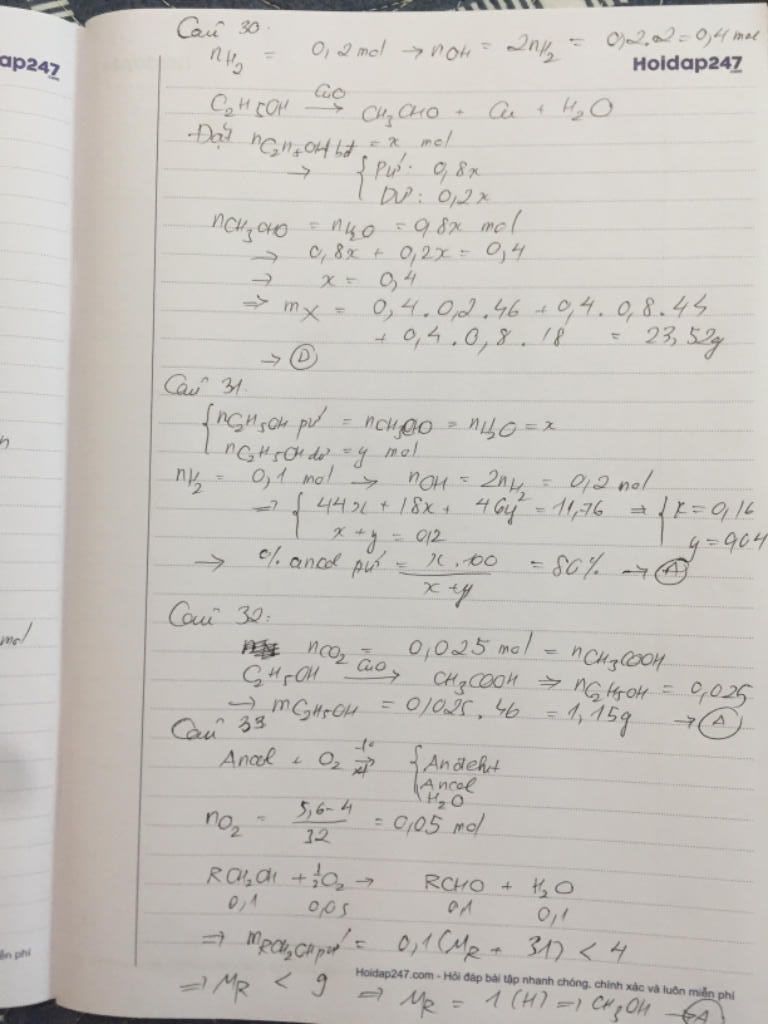 Câu 30.
nH2 = 0,2 mol → nOH = 2nH2 = 0,2.2 = 0,4 mol
ap247
.com
Hoidap247
.com
C2H5OH —CuO→ CH3CHO + Cu + H2O
Đặt nC2H5OH bđ = x mol
→ { Pứ: 0,8x
Dư: 0,2x
nCH3CHO = nH2O = 0,8x mol
→ 0,8x + 0,2x = 0,4
→ x = 0,4
⇒ mX = 0,4.0,2.46 + 0,4.0,8.44
+ 0,4.0,8.18 = 23,52g
→ D
Câu 31.
{ nC2H5OH pứ = nCH3CHO = nH2O = x
nC2H5OH dư = y mol
nH2 = 0,1 mol → nOH = 2nH2 = 0,2 mol
⇒ { 44x + 18x + 46y = 11,76 ⇒ { x = 0,16
x + y = 0,2 y = 0,04
→ % ancol pứ = x.100 / x+y = 80% → A
Câu 32:
nCO2 = 0,025 mol = nCH3COOH
mol
C2H5OH —CuO→ CH3COOH ⇒ nC2H5OH = 0,025
→ mC2H5OH = 0,025.46 = 1,15g → A
Câu 33
Ancol + O2 —t°→ { Andehit
Ancol
H2O
nO2 = 5,6-4 / 32 = 0,05 mol
RCH2OH + 1/2 O2 → RCHO + H2O
0,1 0,05 0,1 0,1
⇒ mRCH2OH pứ = 0,1(MR + 31) < 4
ễn phí
Hoidap247.com - Hỏi đáp bài tập nhanh chóng, chính xác và luôn miễn phí
⇒ MR < 9 ⇒ MR = 1 (H) ⇒ CH3OH → A